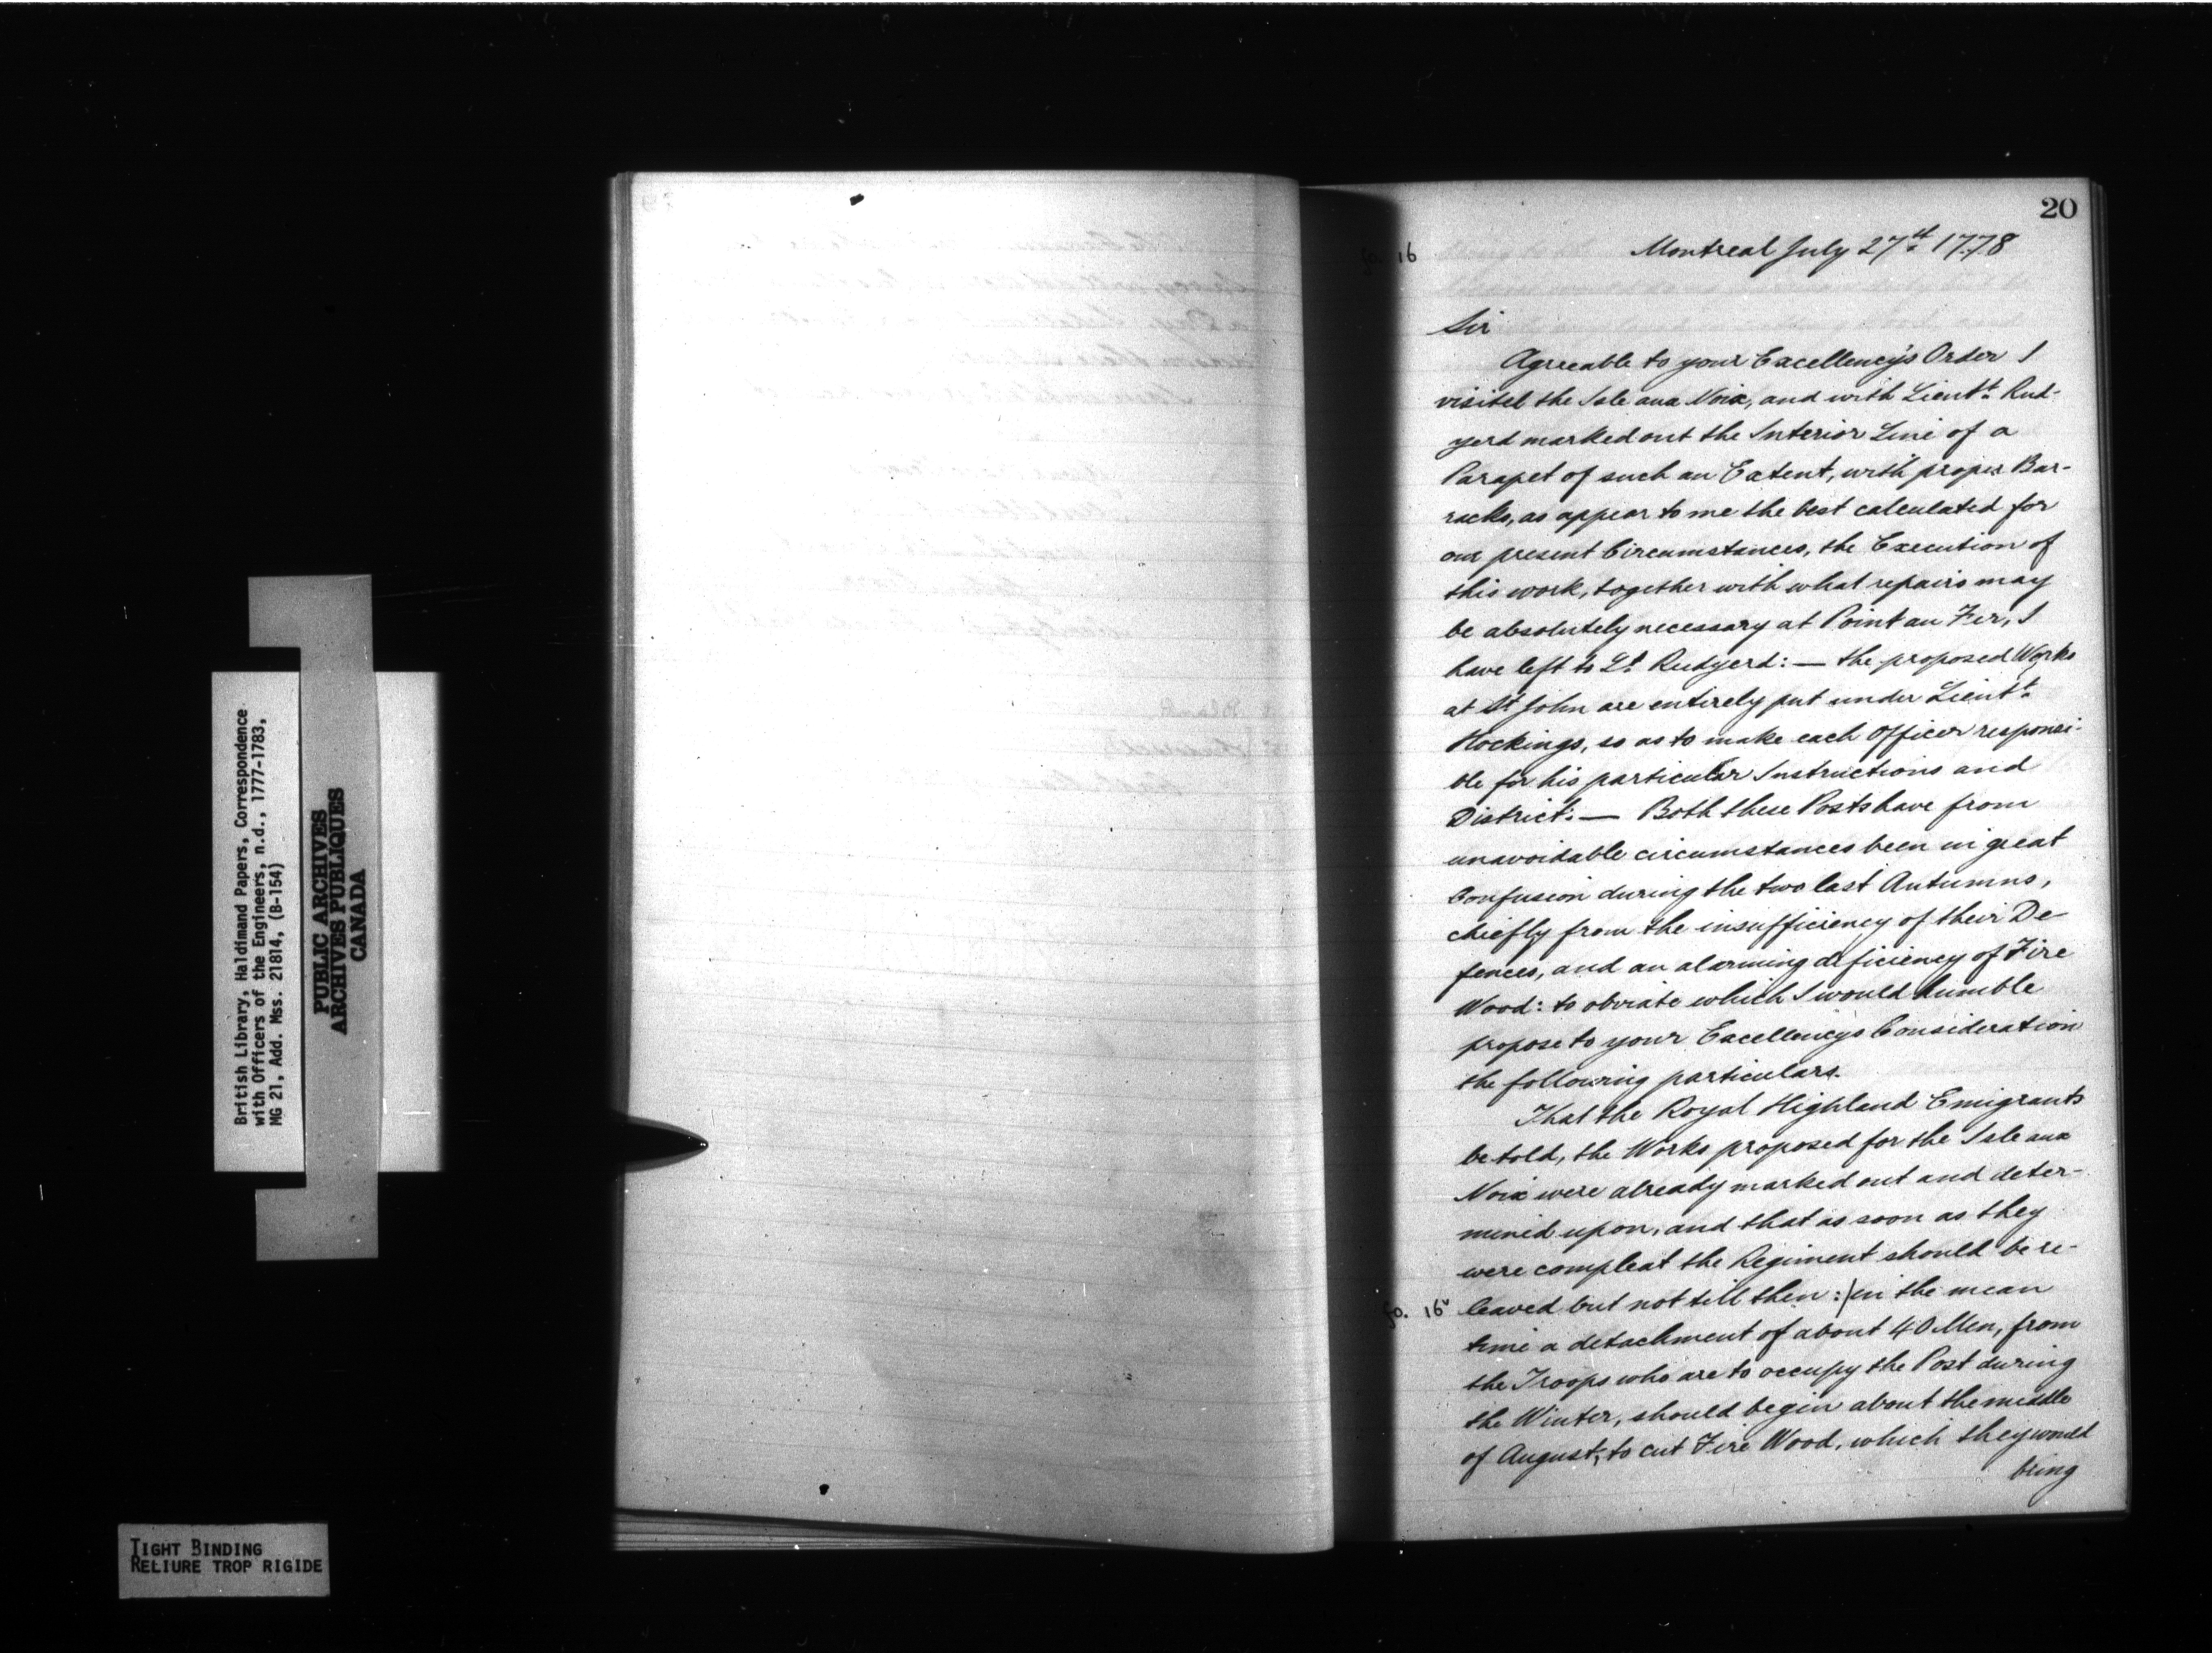 British Library, Haldimand Papers, Correspondence
with Officers of the Engineers, n.d., 1777-1783,
MG 21, Add. Mss. 21814, (B-154)
PUBLIC ARCHIVES
ARCHIVES PUBLIQUES
CANADA
TIGHT BINDING
RELIURE TROP RIGIDE
20
fo. 16
Montreal July 27th 1778
Sir
Agreeable to your Excellency's Order I
visited the Isle aux Noix, and with Lieutt. Rud-
yerd marked out the Interior Line of a
Parapet of such an Extent, with proper Bar-
racks, as appear to me the best calculated for
our present Circumstances, the Execution of
this work, together with what repairs may
be absolutely necessary at Point au Fer, I
have left to Lt. Rudyerd: — the proposed Works
at St John are entirely put under Lieutt.
Hockings, so as to make each Officer responsi-
ble for his particular Instructions and
District: — Both these Posts have from
unavoidable circumstances been in great
Confusion during the two last Autumns,
chiefly from the insufficiency of their De-
fences, and an alarming deficiency of Fire
Wood: to obviate which I would humble
propose to your Excellency's Consideration
the following particulars.
That the Royal Highland Emigrants
be told, the Works proposed for the Isle aux
Noix were already marked out and deter-
mined upon, and that as soon as they
were compleat the Regiment should be re-
fo. 16v leaved but not till then:/in the mean
time a detachment of about 40 Men, from
the Troops who are to occupy the Post during
the Winter, should begin about the middle
of August, to cut Fire Wood, which they would
bring